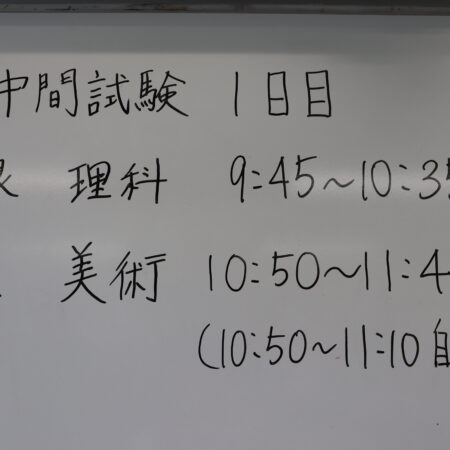 中間試験 1日目
理科 9:45~10:35
美術 10:50~11:4
(10:50~11:10自